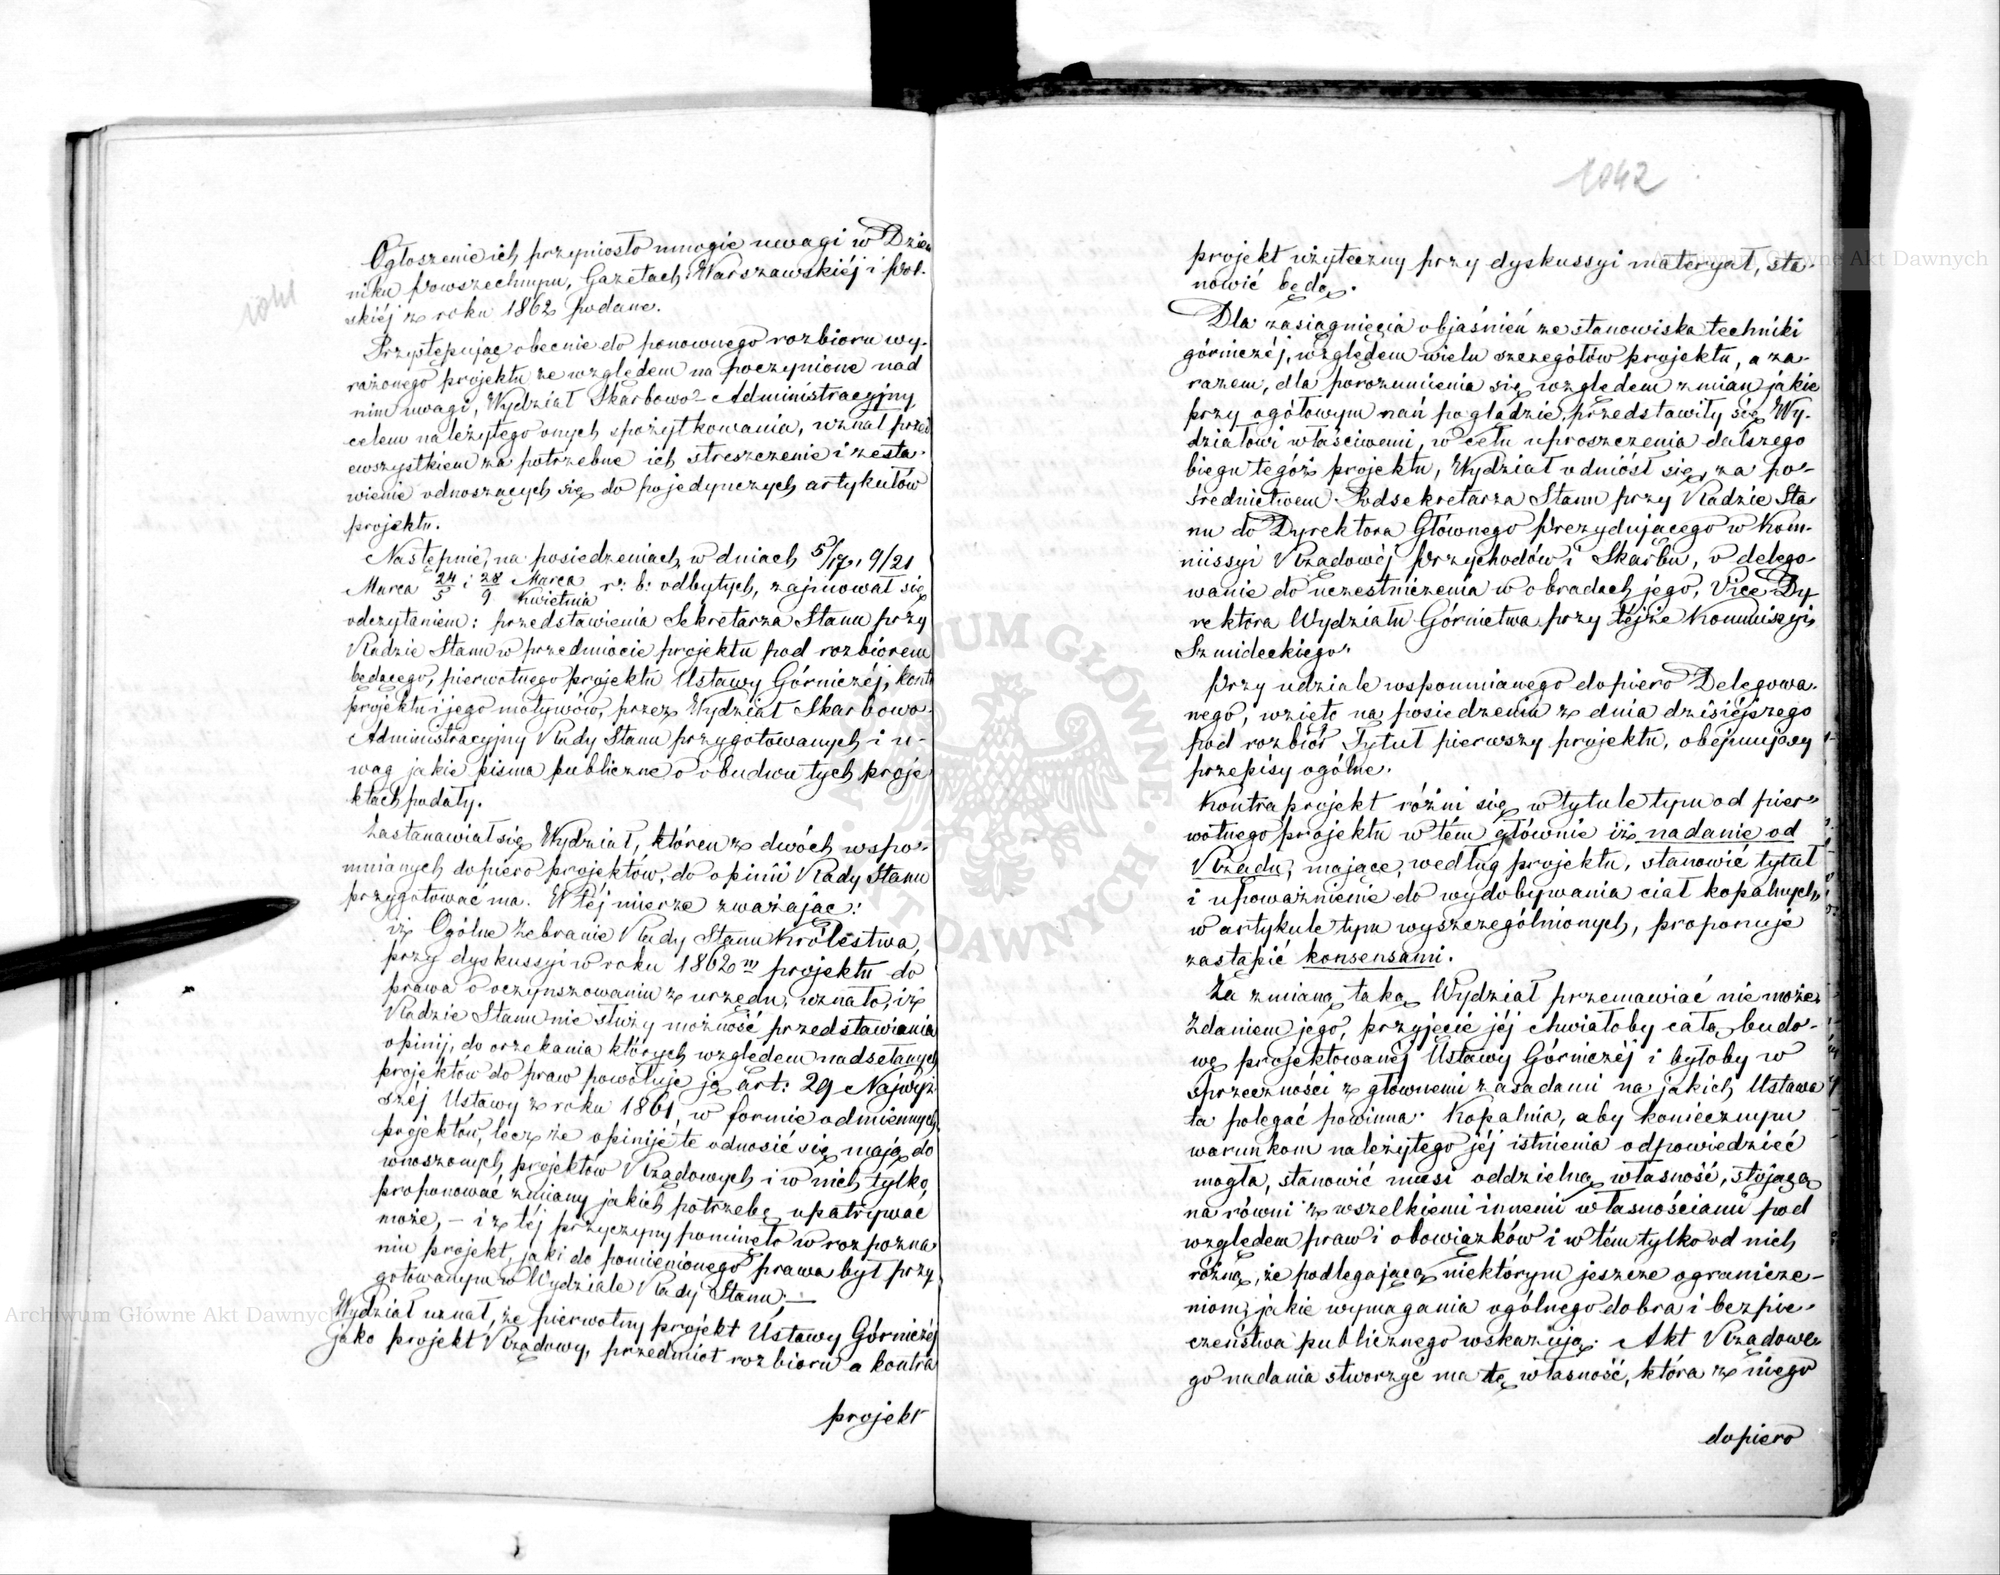 Ogłoszenie ich przyniosło mnogie uwagi w Dzien
niku Powszechnym, Gazetach Warszawskiéj i Pol-
skiéj z roku 1862 podane.
Przystępując obecnie do ponownego rozbioru wy-
rażonego projektu ze względem na poczynione nad
nim uwagi, Wydział Skarbowo-Administracyjny
celem należytego onych spożytkowania, uznał przed
ewszystkiem za potrzebne ich streszczenie i zesta-
wienie odnoszących się do pojedynczych artykułów
projektu.
Następnie, na posiedzeniach w dniach 5/17, 9/21
Marca 24/5 i 28/9 Marca/Kwietnia r: b: odbytych, zajmował się
odczytaniem: przedstawienia Sekretarza Stanu przy
Radzie Stanu w przedmiocie projektu pod rozbiorem
będącego, pierwotnego projektu Ustawy Górniczéj, kontr
projektu i jego motywów, przez Wydział Skarbowo-
Administracyjny Rady Stanu przygotowanych i u-
wag jakie pisma publiczne o obudwu tych proje
ktach podały.
Zastanawiał się Wydział, któren z dwóch wspo-
mnianych dopiero projektów, do opinii Rady Stanu
przygotować ma. W téj mierze zważając:
iż Ogólne Zebranie Rady Stanu Królestwa,
przy dyskussyi w roku 1862m projektu do
prawa o oczynszowaniu z urzędu, uznało, iż
Radzie Stanu nie służy możność przedstawiania
opinij, do orzekania których względem nadsełanych
projektów do praw powołuje ją art: 29 Najwyż
széj Ustawy z roku 1861, w formie odmiennych
projektów, lecz że opinije te odnosić się mają do
wnoszonych projektów Rządowych i w nich tylko,
proponować zmiany jakich potrzebę upatrywać
może, – i z téj przyczyny pominęło w rozpozna
niu projekt, jaki do pomienionego prawa był przy
gotowanym w Wydziale Rady Stanu; –
Wydział uznał, że pierwotny projekt Ustawy Górniczéj
jako projekt Rządowy, przedmiot rozbioru a kontra
projekt
1042
projekt użyteczny przy dyskussyi materyał, sta-
nowić będą.
Dla zasiągnięcia objaśnień ze stanowiska techniki
górniczéj, względem wielu szczegółów projektu, a za-
razem, dla porozumienia się względem zmian jakie
przy ogółowym nań poglądzie, przedstawiły się Wy-
działowi właściwemi, w celu uproszczenia dalszego
biegu tegóż projektu, Wydział odniósł się, za po-
średnictwem Podsekretarza Stanu przy Radzie Sta
nu do Dyrektora Głównego Prezydującego w Kom-
missyi Rządowéj Przychodów i Skarbu, o delego-
wanie do uczestniczenia w obradach jego, Vice Dy
rektora Wydziału Górnictwa przy téjże Kommissyi,
Szmideckiego.
Przy udziale wspomnianego dopiero Delegowa-
nego, wzięto na posiedzeniu z dnia dzisiéjszego
pod rozbiór Tytuł pierwszy projektu, obejmujący
przepisy ogólne.
Kontraprojekt różni się w tytule tym od pier-
wotnego projektu w tém głównie iż nadanie od
Rządu, mające, według projektu, stanowić tytuł
i upoważnienie do wydobywania ciał kopalnych,
w artykule tym wyszczególnionych, proponuje
zastąpić konsensami.
Za zmianą taką Wydział przemawiać nie może,
Zdaniem jego, przyjęcie jéj chwiałoby całą budo-
wę projektowanéj Ustawy Górniczéj i byłoby w
sprzeczności z głównemi zasadami na jakich Ustawa
ta polegać powinna. Kopalnia, aby koniecznym
warunkom należytego jéj istnienia odpowiedzieć
mogła, stanowić musi oddzielną własność, stojącą
na równi z wszelkiemi innemi własnościami pod
względem praw i obowiązków i w tém tylko od nich
różną, że podlegającą niektórym jeszcze ogranicze-
niom, jakie wymagania ogólnego dobra i bezpie-
czeństwa publicznego wskazują. Akt Rządowe-
go nadania stworzyć ma tę własność, która z niego
dopiero
Archiwum Główne Akt Dawnych
Archiwum Główne Akt Dawnych